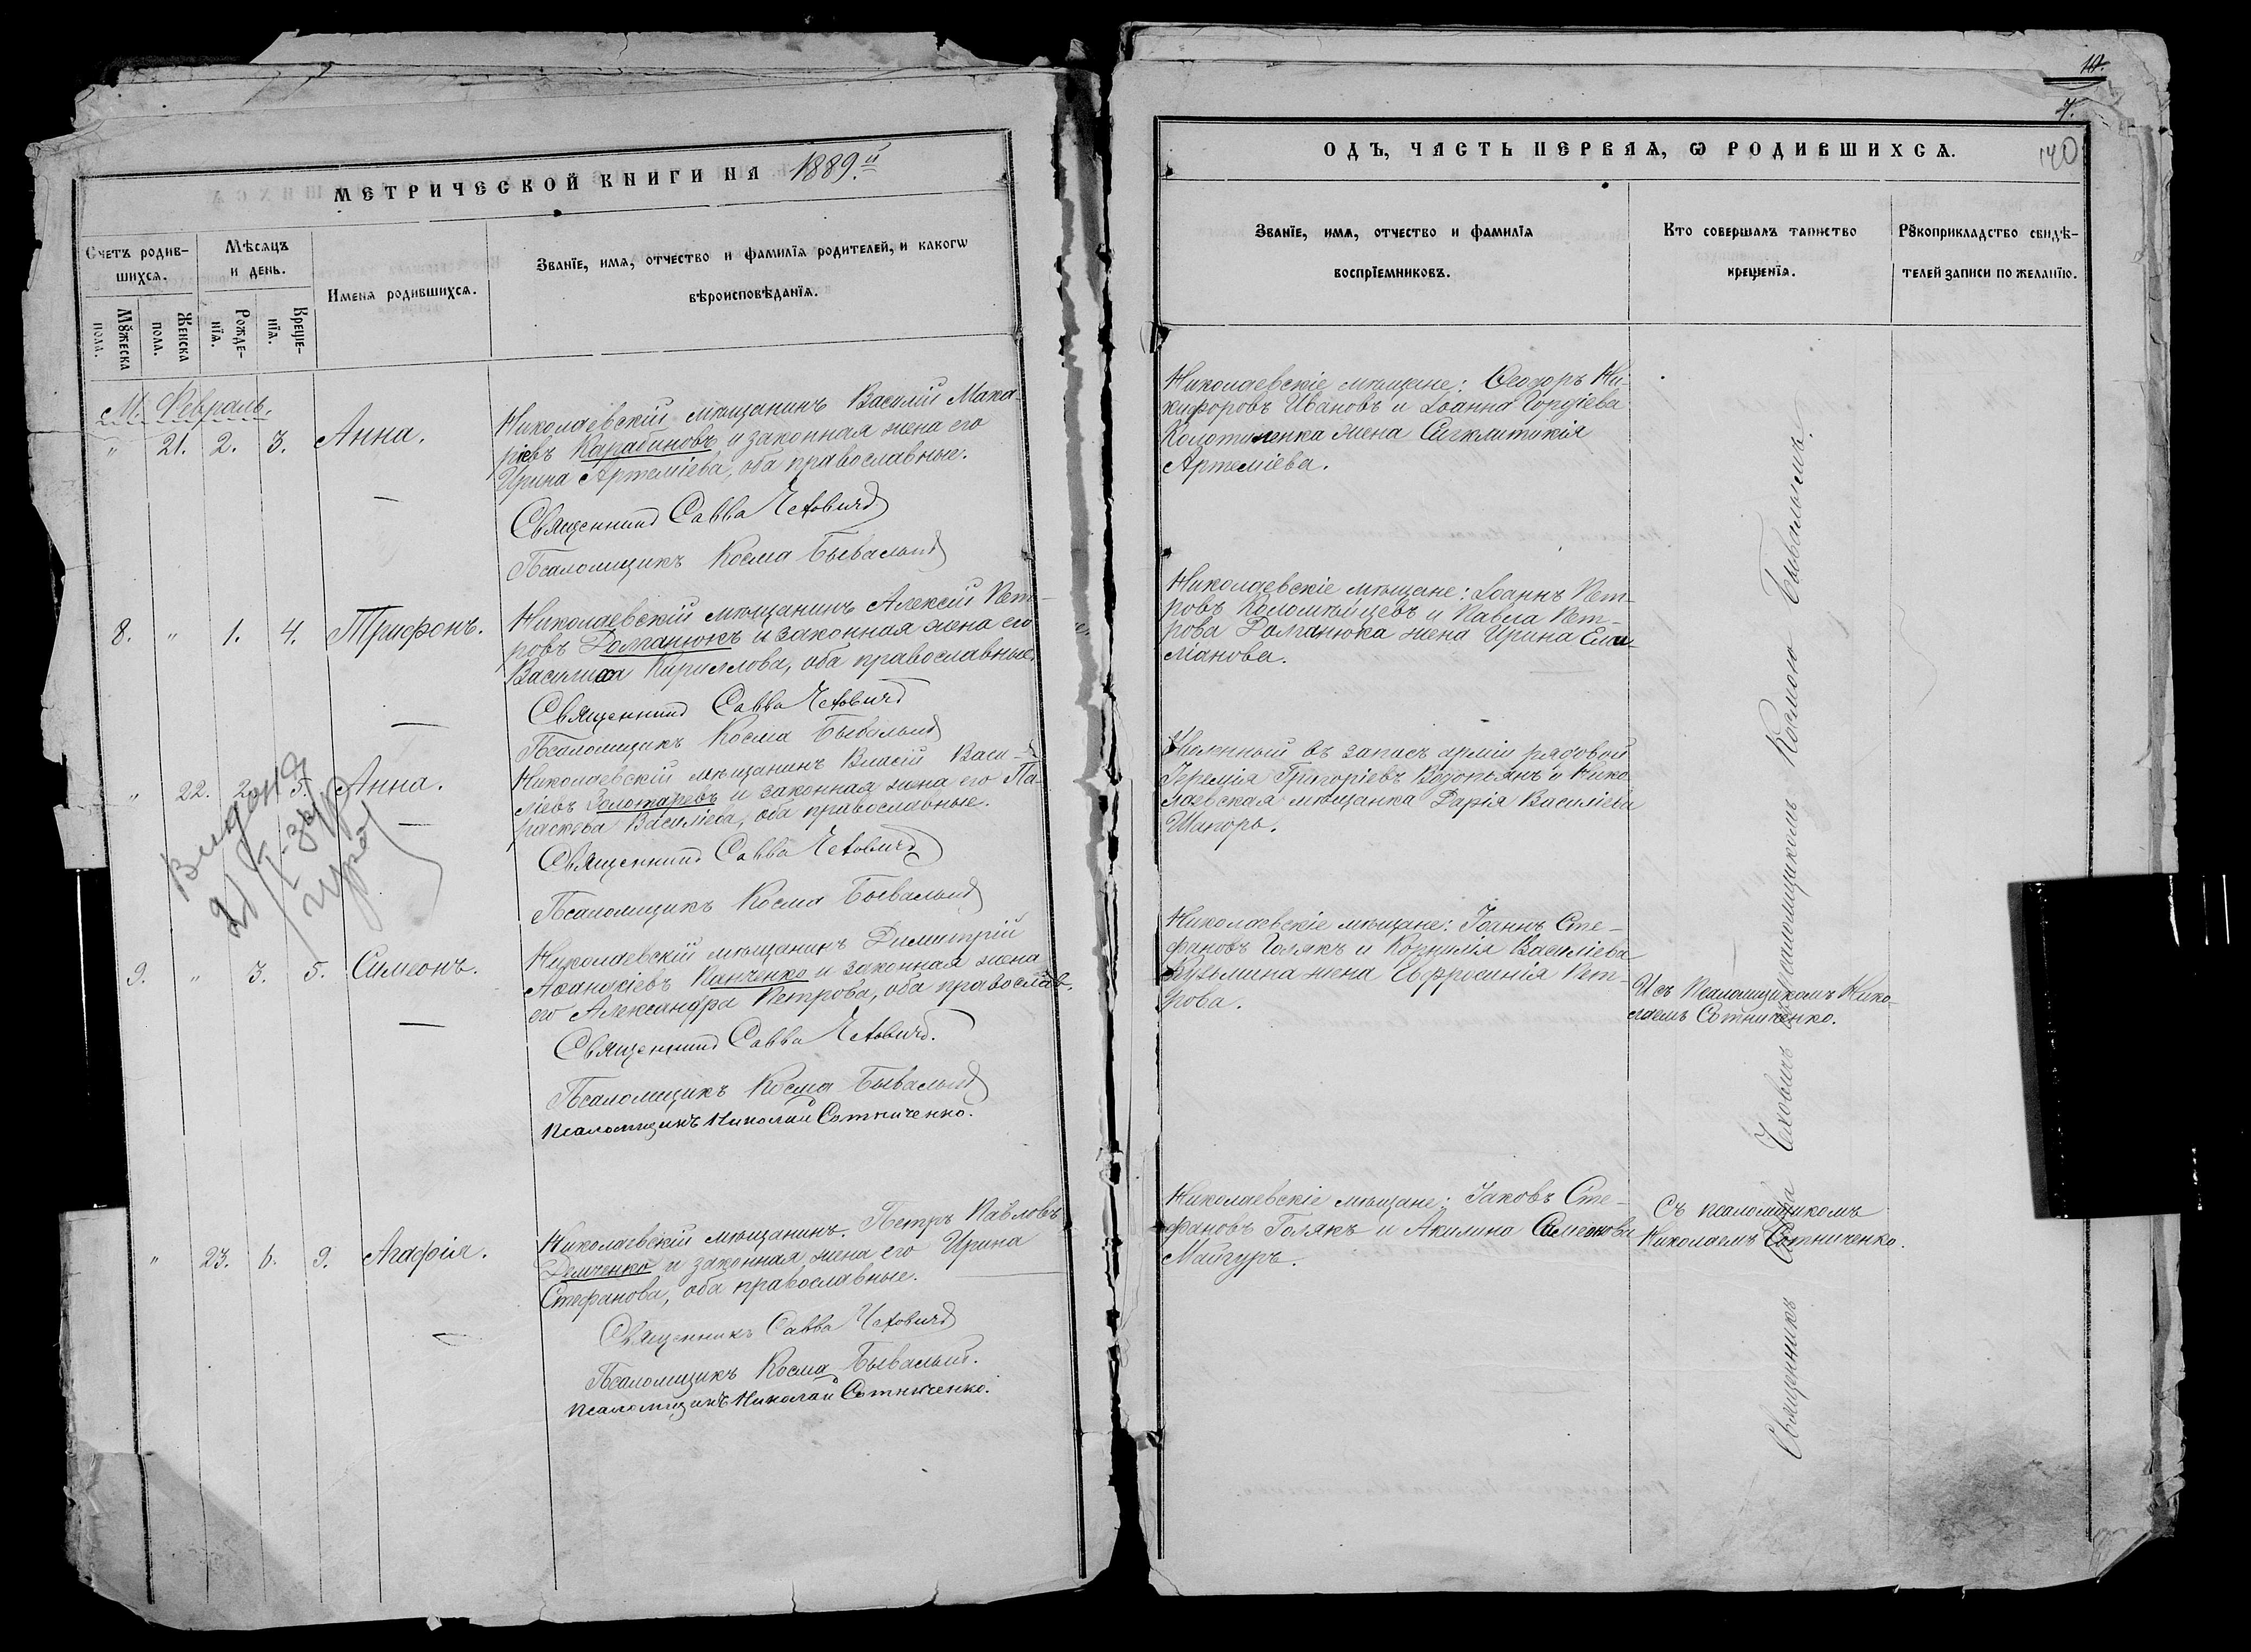 МЕТРИЧЕСКОЙ КНИГИ НА 1889.й
Счетъ родив-
шихся.
Мѣсяцъ
и день.
Имена родившихся.
Званїе, имя, отчество и фамилїя родителей, и какогѡ
вѣроисповѣданїя.
Мꙋжеска
пола.
Женска
пола.
Рожде-
нїя.
Креще-
нїя.
М. Февраль.
" 21. 2. 3. Анна.
Николаевскій мѣщанинъ Василій Мака
ріевъ Карабиновъ и законная жена его
Ирина Артеміева, оба православные.
Священникъ Савва Чеховичъ
Псаломщикъ Косма Бывалый
8. " 1. 4. Трифонъ.
Николаевскій мѣщанинъ Алексій Пет-
ровъ Долганюкъ и законная жена его
Василиса Кириллова, оба православные.
Священникъ Савва Чеховичъ
Псаломщикъ Косма Бывалый
" 22. 2. 5. Анна.
Николаевскій мѣщанинъ Власій Васи-
ліевъ Золотаревъ и законная жена его Па-
раскева Василіева, оба православные.
Священникъ Савва Чеховичъ
Псаломщикъ Косма Бывалый
Видана
9. " 3. 5. Симеонъ.
Николаевскій мѣщанинъ Димитрій
Аѳанасіевъ Панченко и законная жена
его Александра Петрова, оба православ.
Священникъ Савва Чеховичъ.
Псаломщикъ Косма Бывалый
Псаломщикъ Николай Сотниченко.
" 23. 6. 9. Агафія.
Николаевскій мѣщанинъ Петръ Павловъ
Демченко и законная жена его Ирина
Стефанова, оба православные.
Священникъ Савва Чеховичъ
Псаломщикъ Косма Бывалый.
Псаломщикъ Николай Сотниченко.
7.
140
ОДЪ, ЧАСТЬ ПЕРВАЯ, Ѡ РОДИВШИХСЯ.
Званїе, имя, отчество и фамилїя
воспрїемниковъ.
Кто совершалъ таинство
крещенїя.
Рꙋкоприкладство свидѣ-
телей записи по желанїю.
Николаевскіе мѣщане: Ѳеодоръ Ни-
кифоровъ Ивановъ и Іоанна Гордіева
Колотиленка жена Сигклитикія
Артеміева.
Николаевскіе мѣщане: Іоаннъ Пет-
ровъ Коломѣйцевъ и Павла Пет-
рова Долганюка жена Ирина Еми-
ліанова.
Уволенный въ запасъ арміи рядовой
Іеремія Григоріевъ Водопьянъ и Нико
лаевская мѣщанка Дарія Василіева
Шапоръ.
Николаевскіе мѣщане: Іоаннъ Сте-
фановъ Голякъ и Корнилія Василіева
Кузьмина жена Евфросинія Пет-
рова.
И съ Псаломщикомъ Нико-
лаемъ Сотниченко.
Николаевскіе мѣщане: Іаковъ Сте-
фановъ Голякъ и Акилина Симеонова
Майгуръ.
Съ псаломщикомъ
Николаемъ Сотниченко.
Священникъ Савва Чеховичъ съ псаломщикомъ Космою Бывалымъ.